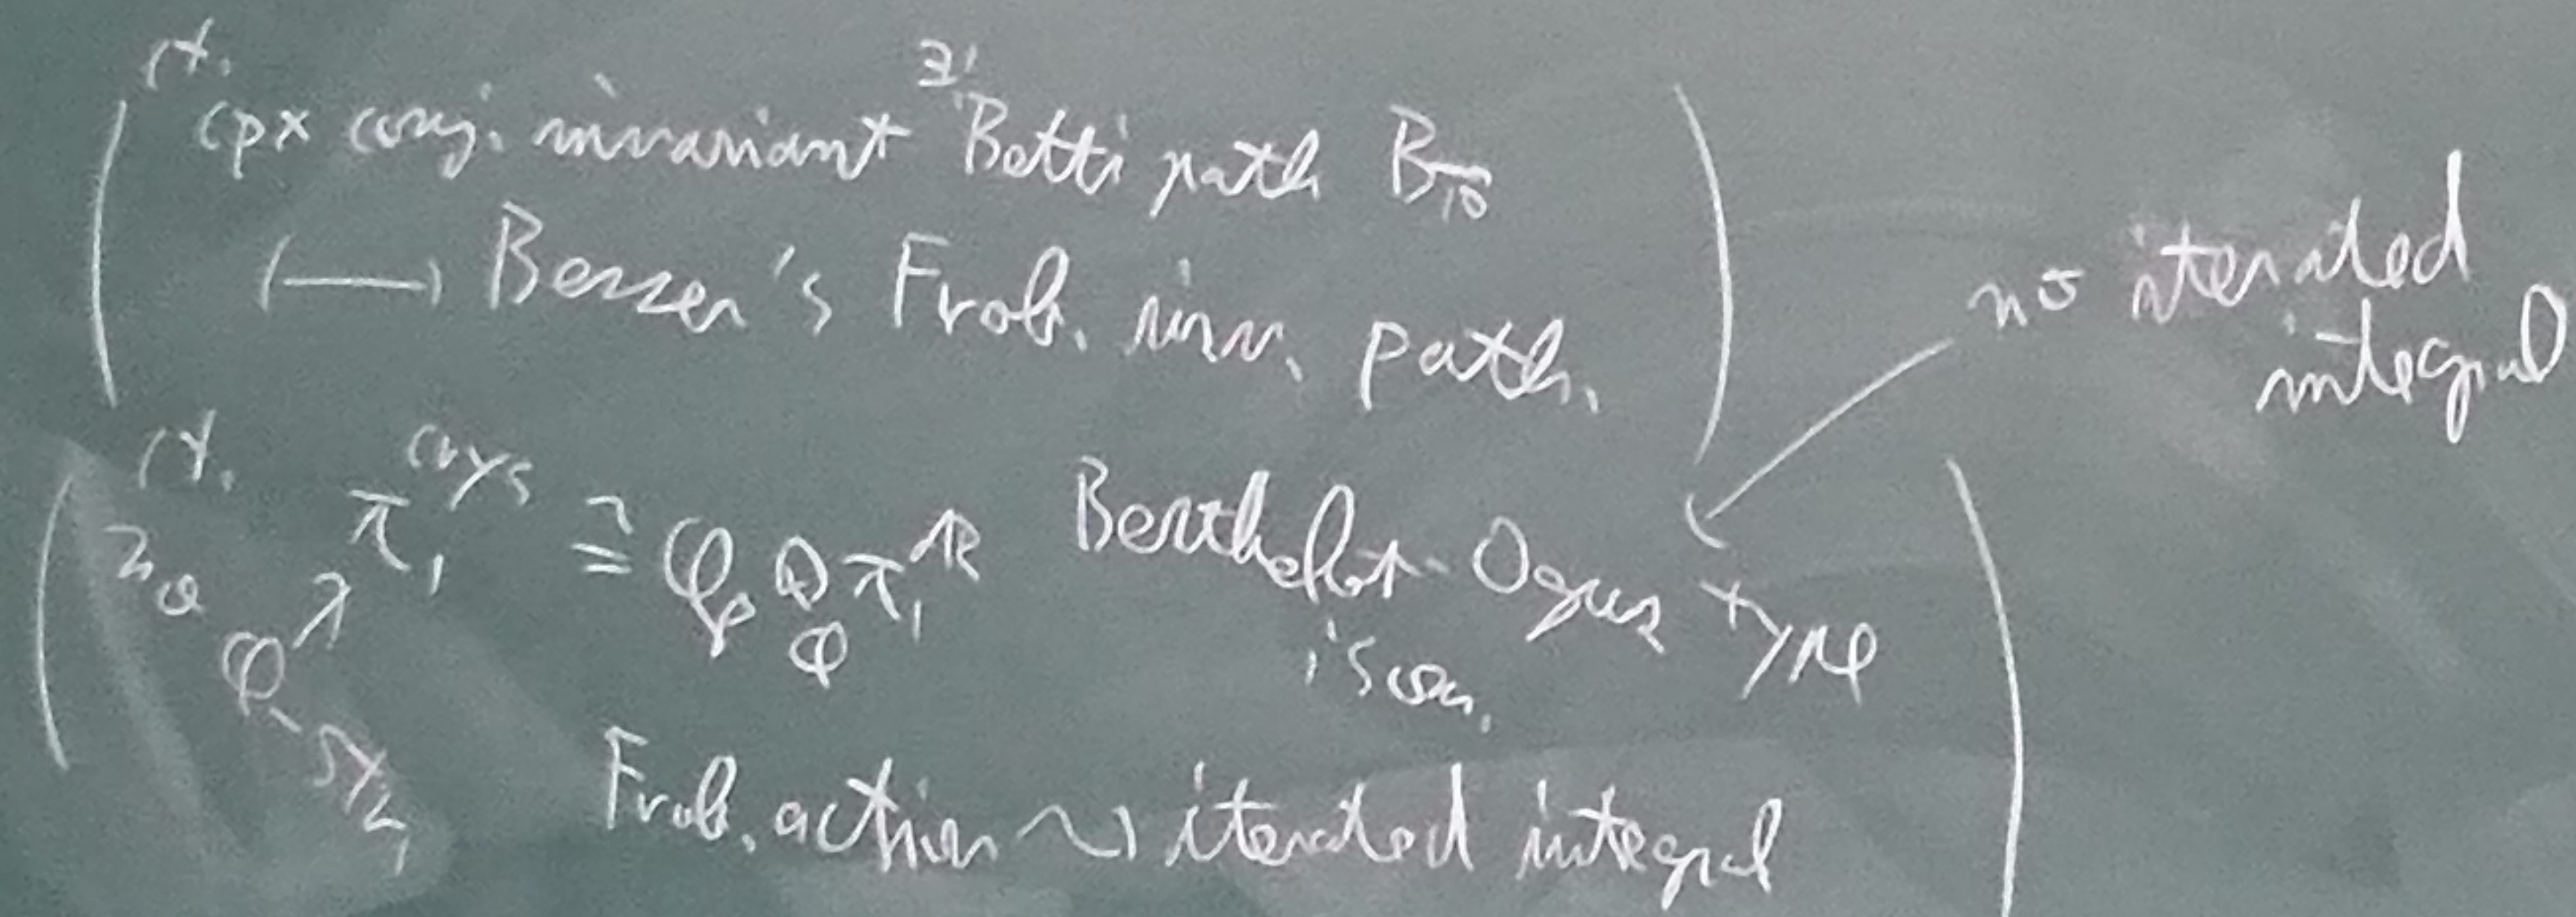 cf. cpx conj. invariant ∃! Betti path
⟷ Besser's Frob. inv. path.
no iterated
integral
cf. π₁^crys ≅ ℚ_p ⊗_ℚ π₁^dR Berthelot-Ogus type
isom.
Frob. action ⇝ iterated integral